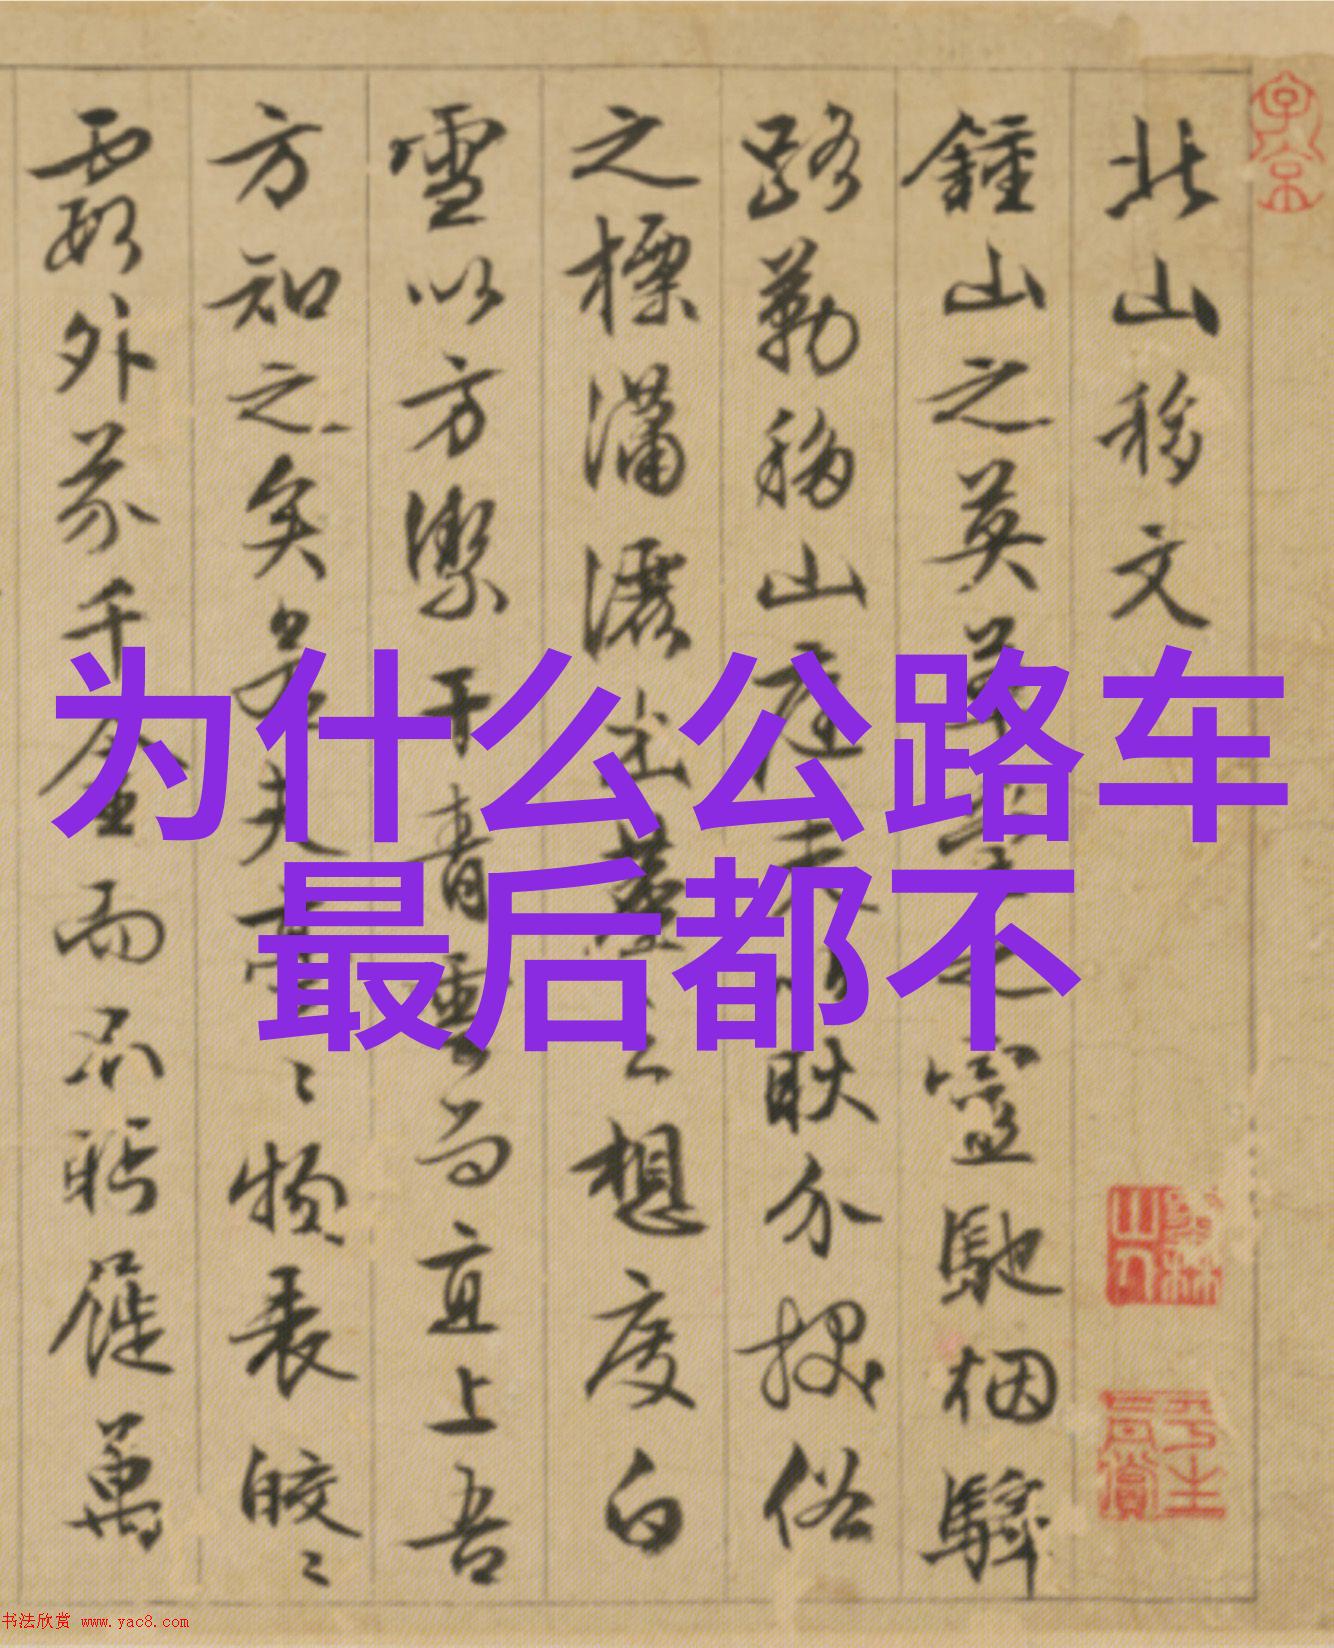 为什么公路车
最后都不
北山移文
鍾山之英草堂之靈馳烟驛
路勒移山庭夫以耿介拔俗
之標瀟灑出塵之想度白
雪以方潔干青雲而直上吾
方知之矣若夫亭〻物表皎〻
霞外芥千金而不眄屣萬
子京
墨林山人
平生真賞
书法欣赏 www.yac8.com